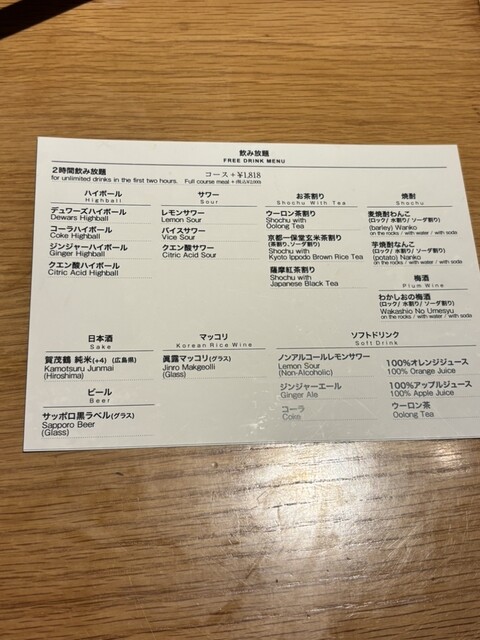 飲み放題
FREE DRINK MENU
2時間飲み放題
for unlimited drinks in the first two hours.
コース +¥1,818
Full course meal + (税込¥2,000)
ハイボール
Highball
デュワーズハイボール
Dewars Highball
コーラハイボール
Coke Highball
ジンジャーハイボール
Ginger Highball
クエン酸ハイボール
Citric Acid Highball
サワー
Sour
レモンサワー
Lemon Sour
バイスサワー
Vice Sour
クエン酸サワー
Citric Acid Sour
お茶割り
Shochu With Tea
ウーロン茶割り
Shochu with
Oolong Tea
京都一保堂玄米茶割り
(茶割り、ソーダ割り)
Shochu with
Kyoto Ippodo Brown Rice Tea
薩摩紅茶割り
Shochu with
Japanese Black Tea
焼酎
Shochu
麦焼酎わんこ
(ロック/ 水割り/ ソーダ割り)
(barley) Wanko
on the rocks / with water / with soda
芋焼酎なんこ
(ロック/ 水割り/ ソーダ割り)
(potato) Nanko
on the rocks / with water / with soda
梅酒
Plum Wine
わかしおの梅酒
(ロック/ 水割り/ ソーダ割り)
Wakashio No Umesyu
on the rocks / with water / with soda
日本酒
Sake
賀茂鶴 純米(+4) (広島県)
Kamotsuru Junmai
(Hiroshima)
ビール
Beer
サッポロ黒ラベル(グラス)
Sapporo Beer
(Glass)
マッコリ
Korean Rice Wine
眞露マッコリ(グラス)
Jinro Makgeolli
(Glass)
ソフトドリンク
Soft Drink
ノンアルコールレモンサワー
Lemon Sour
(Non-Alcoholic)
ジンジャーエール
Ginger Ale
コーラ
Coke
100%オレンジジュース
100% Orange Juice
100%アップルジュース
100% Apple Juice
ウーロン茶
Oolong Tea